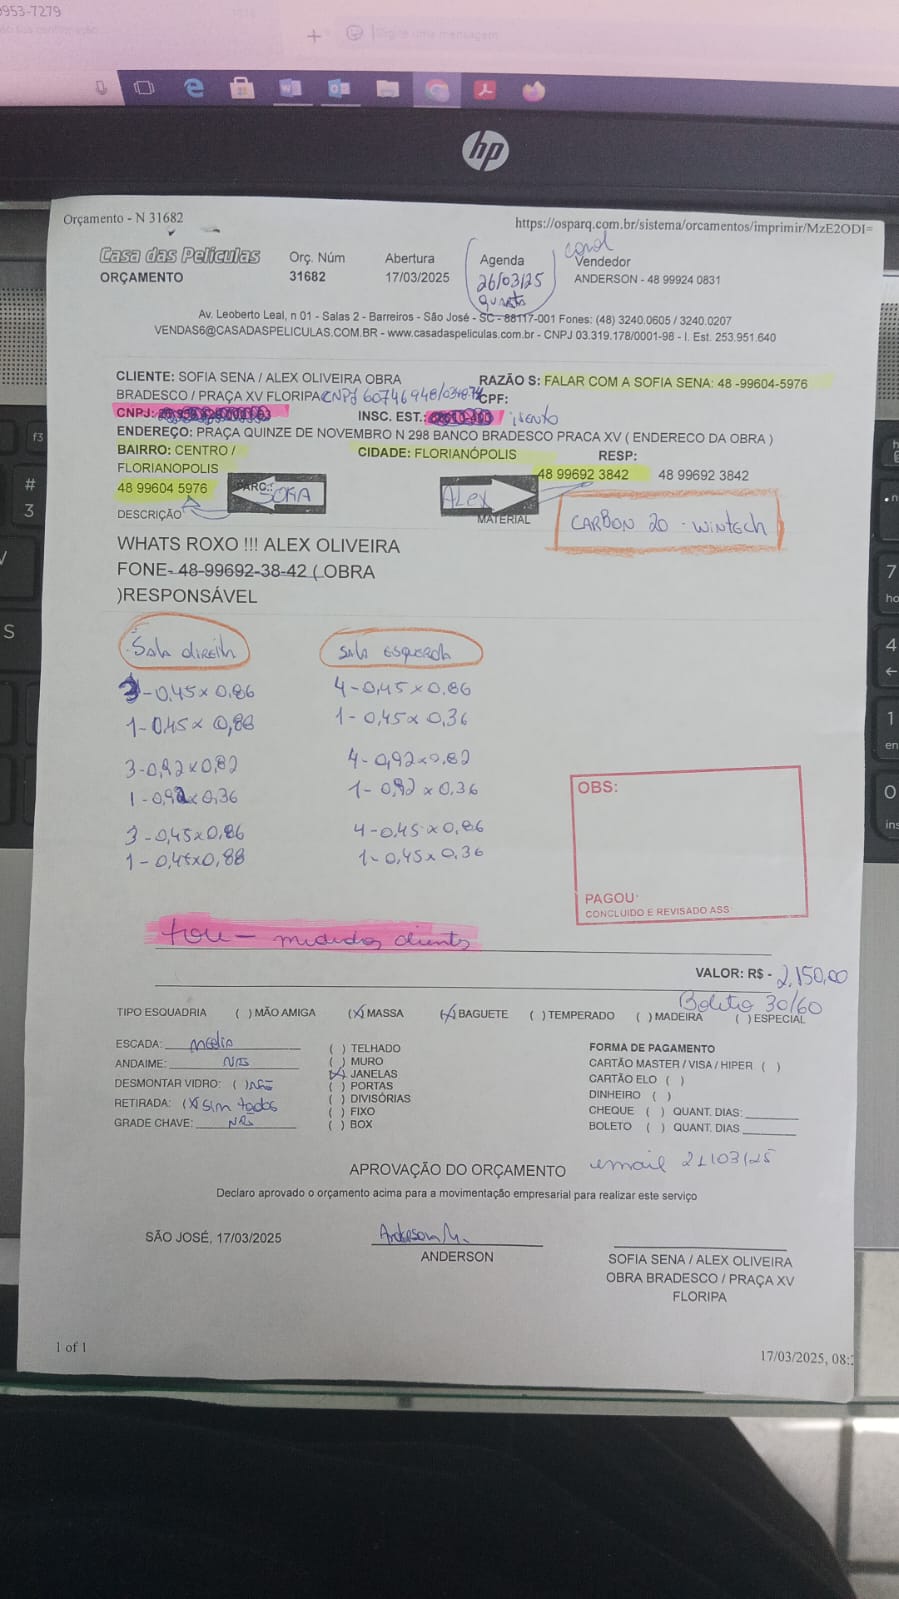 9953-7279
Digite uma mensagem
hp
f3
#
3
S
7
4
1
en
0
ins
Orçamento - N 31682
https://osparq.com.br/sistema/orcamentos/imprimir/MzE2ODI=
Casa das Películas
ORÇAMENTO
Orç. Núm
31682
Abertura
17/03/2025
Agenda
26/03/25
quarta
Vendedor
ANDERSON - 48 99924 0831
Av. Leoberto Leal, n 01 - Salas 2 - Barreiros - São José - SC - 88117-001 Fones: (48) 3240.0605 / 3240.0207
VENDAS6@CASADASPELICULAS.COM.BR - www.casadaspeliculas.com.br - CNPJ 03.319.178/0001-98 - I. Est. 253.951.640
CLIENTE: SOFIA SENA / ALEX OLIVEIRA OBRA
RAZÃO S: FALAR COM A SOFIA SENA: 48 -99604-5976
BRADESCO / PRAÇA XV FLORIPA CNPJ 60746948/ CPF:
CNPJ: INSC. EST.: isento
ENDEREÇO: PRAÇA QUINZE DE NOVEMBRO N 298 BANCO BRADESCO PRACA XV ( ENDERECO DA OBRA )
BAIRRO: CENTRO /
FLORIANOPOLIS
CIDADE: FLORIANÓPOLIS
RESP:
48 99692 3842 48 99692 3842
48 99604 5976 PARC.: SOFIA Alex
DESCRIÇÃO MATERIAL CARBON 20 - Wintech
WHATS ROXO !!! ALEX OLIVEIRA
FONE- 48-99692-38-42 ( OBRA
)RESPONSÁVEL
Sala direita Sala Esquerda
3-0,45x0,86 4-0,45x0,86
1-0,45x0,88 1-0,45x0,36
3-0,92x0,82 4-0,92x0,82
1-0,92x0,36 1-0,92x0,36
3-0,45x0,86 4-0,45x0,86
1-0,45x0,88 1-0,45x0,36
OBS:
PAGOU:
CONCLUIDO E REVISADO ASS:
medidas cliente
VALOR: R$ - 2.150,00
Boleto 30/60
TIPO ESQUADRIA ( ) MÃO AMIGA (X) MASSA (X) BAGUETE ( ) TEMPERADO ( ) MADEIRA ( ) ESPECIAL
ESCADA: média
ANDAIME: Não
DESMONTAR VIDRO: ( ) Não
RETIRADA: (X) sim todos
GRADE CHAVE: Não
( ) TELHADO
( ) MURO
(X) JANELAS
( ) PORTAS
( ) DIVISÓRIAS
( ) FIXO
( ) BOX
FORMA DE PAGAMENTO
CARTÃO MASTER / VISA / HIPER ( )
CARTÃO ELO ( )
DINHEIRO ( )
CHEQUE ( ) QUANT. DIAS:
BOLETO ( ) QUANT. DIAS
APROVAÇÃO DO ORÇAMENTO email 21/03/25
Declaro aprovado o orçamento acima para a movimentação empresarial para realizar este serviço
SÃO JOSÉ, 17/03/2025
Anderson M.
ANDERSON
SOFIA SENA / ALEX OLIVEIRA
OBRA BRADESCO / PRAÇA XV
FLORIPA
1 of 1
17/03/2025, 08: